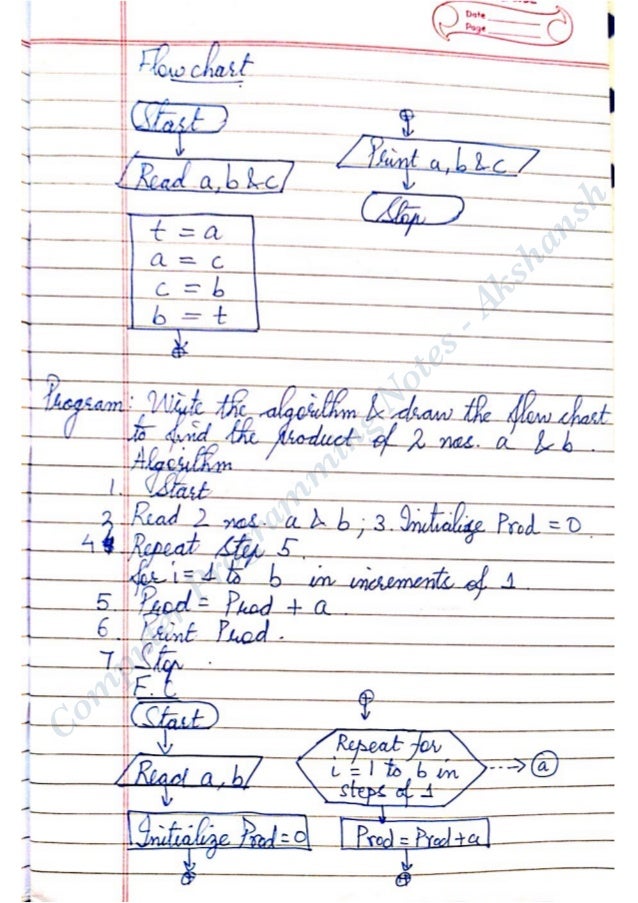 Date
Page
Flow chart
Start
Read a, b & c
t = a
a = c
c = b
b = t
Print a, b & c
Stop
Program: Write the algorithm & draw the flow chart
to find the product of 2 nos. a & b.
Algorithm
1. Start
2 Read 2 nos. a & b ; 3. Initialize Prod = 0.
4 Repeat Step 5.
for i = 1 to b in increments of 1.
5. Prod = Prod + a.
6. Print Prod.
7. Stop.
F.C
Start
Read a, b
Initialize Prod = 0
Repeat for
i = 1 to b in
steps of 1
a
Prod = Prod + a
Computer Programming Notes - Akshansh